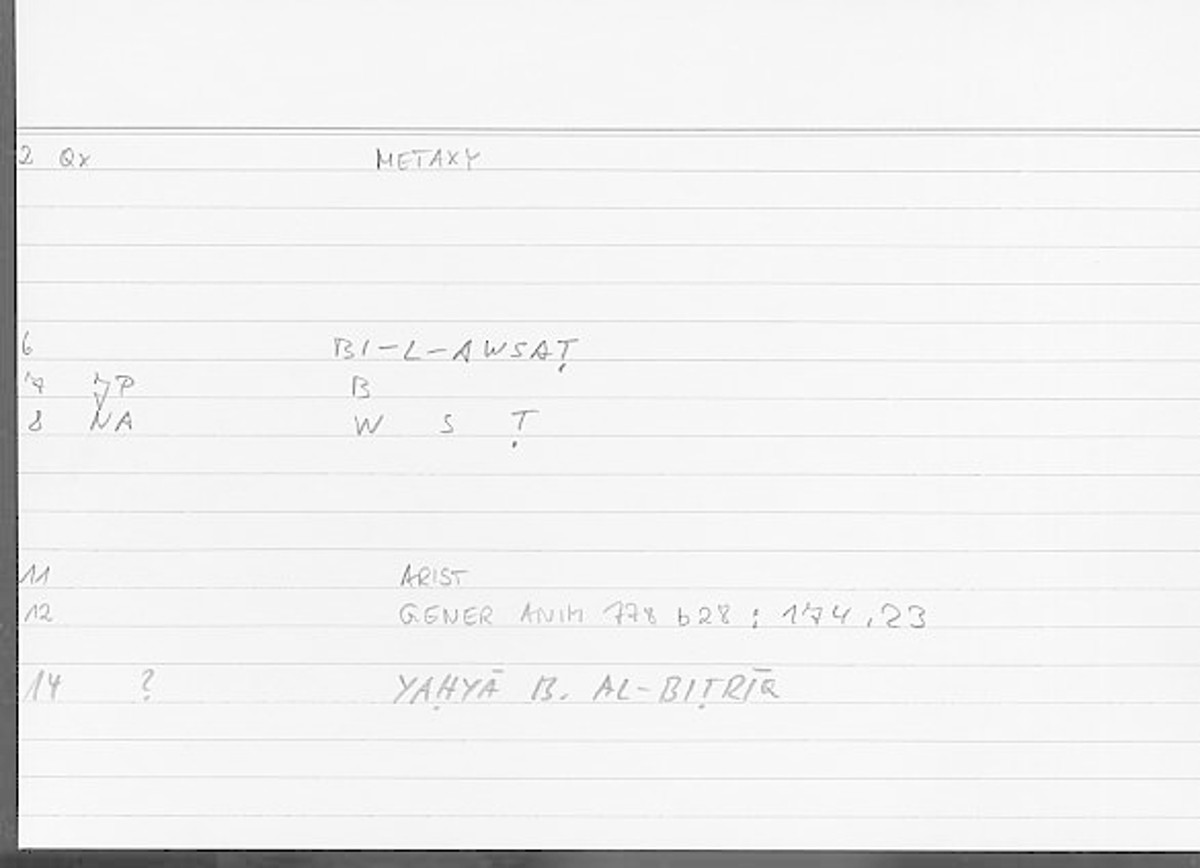 2 Qx METAXY
6 BI-L-AWSAṬ
7 JP B
8 NA W S Ṭ
11 ARIST
12 GENER ANIM 778 b28 : 174,23
14 ? YAḤYĀ B. AL-BIṬRĪQ